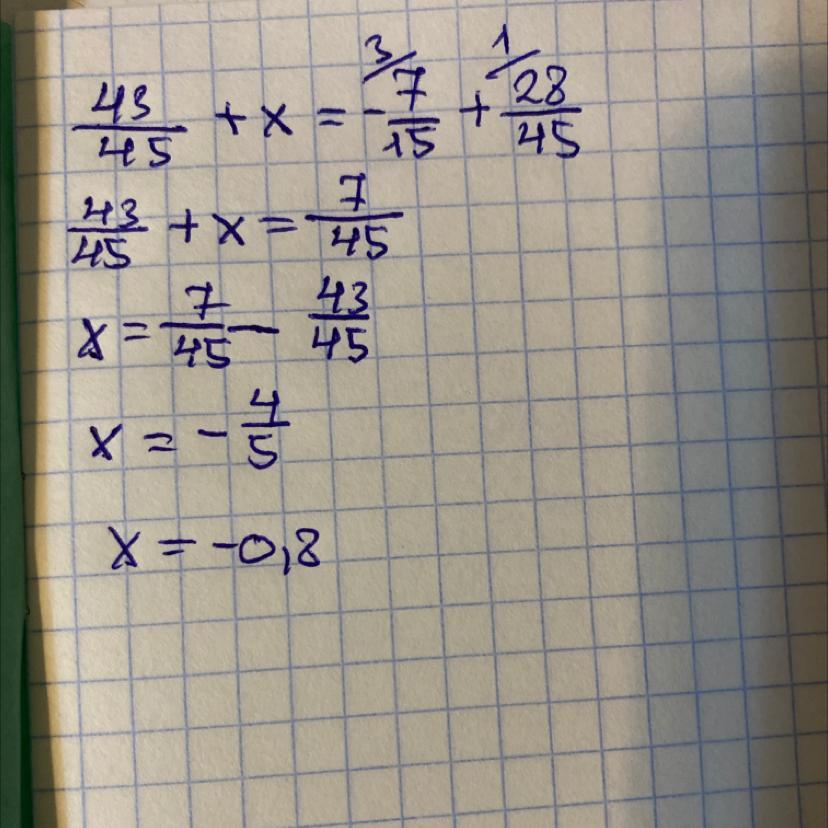 3/ 1/
43/45 + x = -7/15 + 28/45
43/45 + x = 7/45
x = 7/45 - 43/45
x = -4/5
x = -0,8